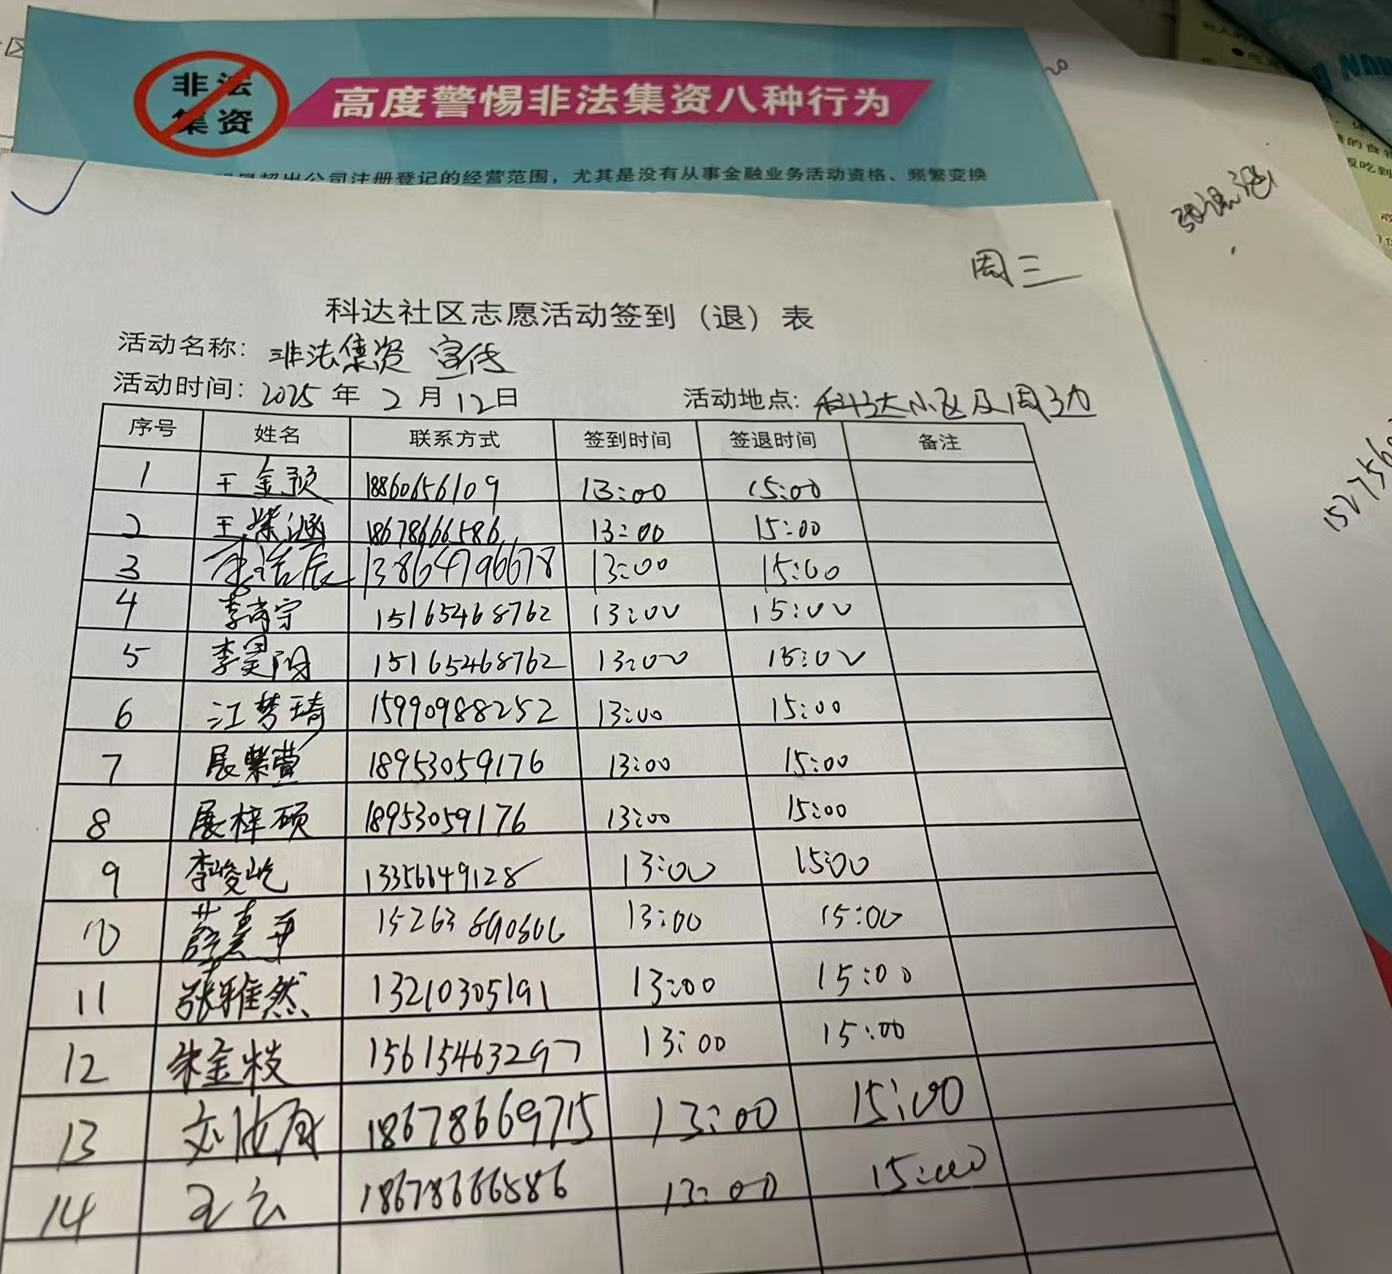 非法
集资
高度警惕非法集资八种行为
超出公司注册登记的经营范围，尤其是没有从事金融业务活动资格、频繁变换
周三
科达社区志愿活动签到（退）表
活动名称：非法集资 宣传
活动时间：2025年2月12日 活动地点：科达小区及周边
序号 姓名 联系方式 签到时间 签退时间 备注
1 王金 18860656109 13:00 15:00
2 王紫涵 18678666586 13:00 15:00
3 13864796678 13:00 15:00
4 李尚宇 15165468762 13:00 15:00
5 李昊阳 15165468762 13:00 15:00
6 江梦琦 15990988252 13:00 15:00
7 展紫萱 18953059176 13:00 15:00
8 展梓硕 18953059176 13:00 15:00
9 李峻屹 13356649128 13:00 15:00
10 15263 13:00 15:00
11 张雅然 13210305191 13:00 15:00
12 朱金枝 15615463297 13:00 15:00
13 18678669715 13:00 15:00
14 王云 18678666586 13:00 15:00